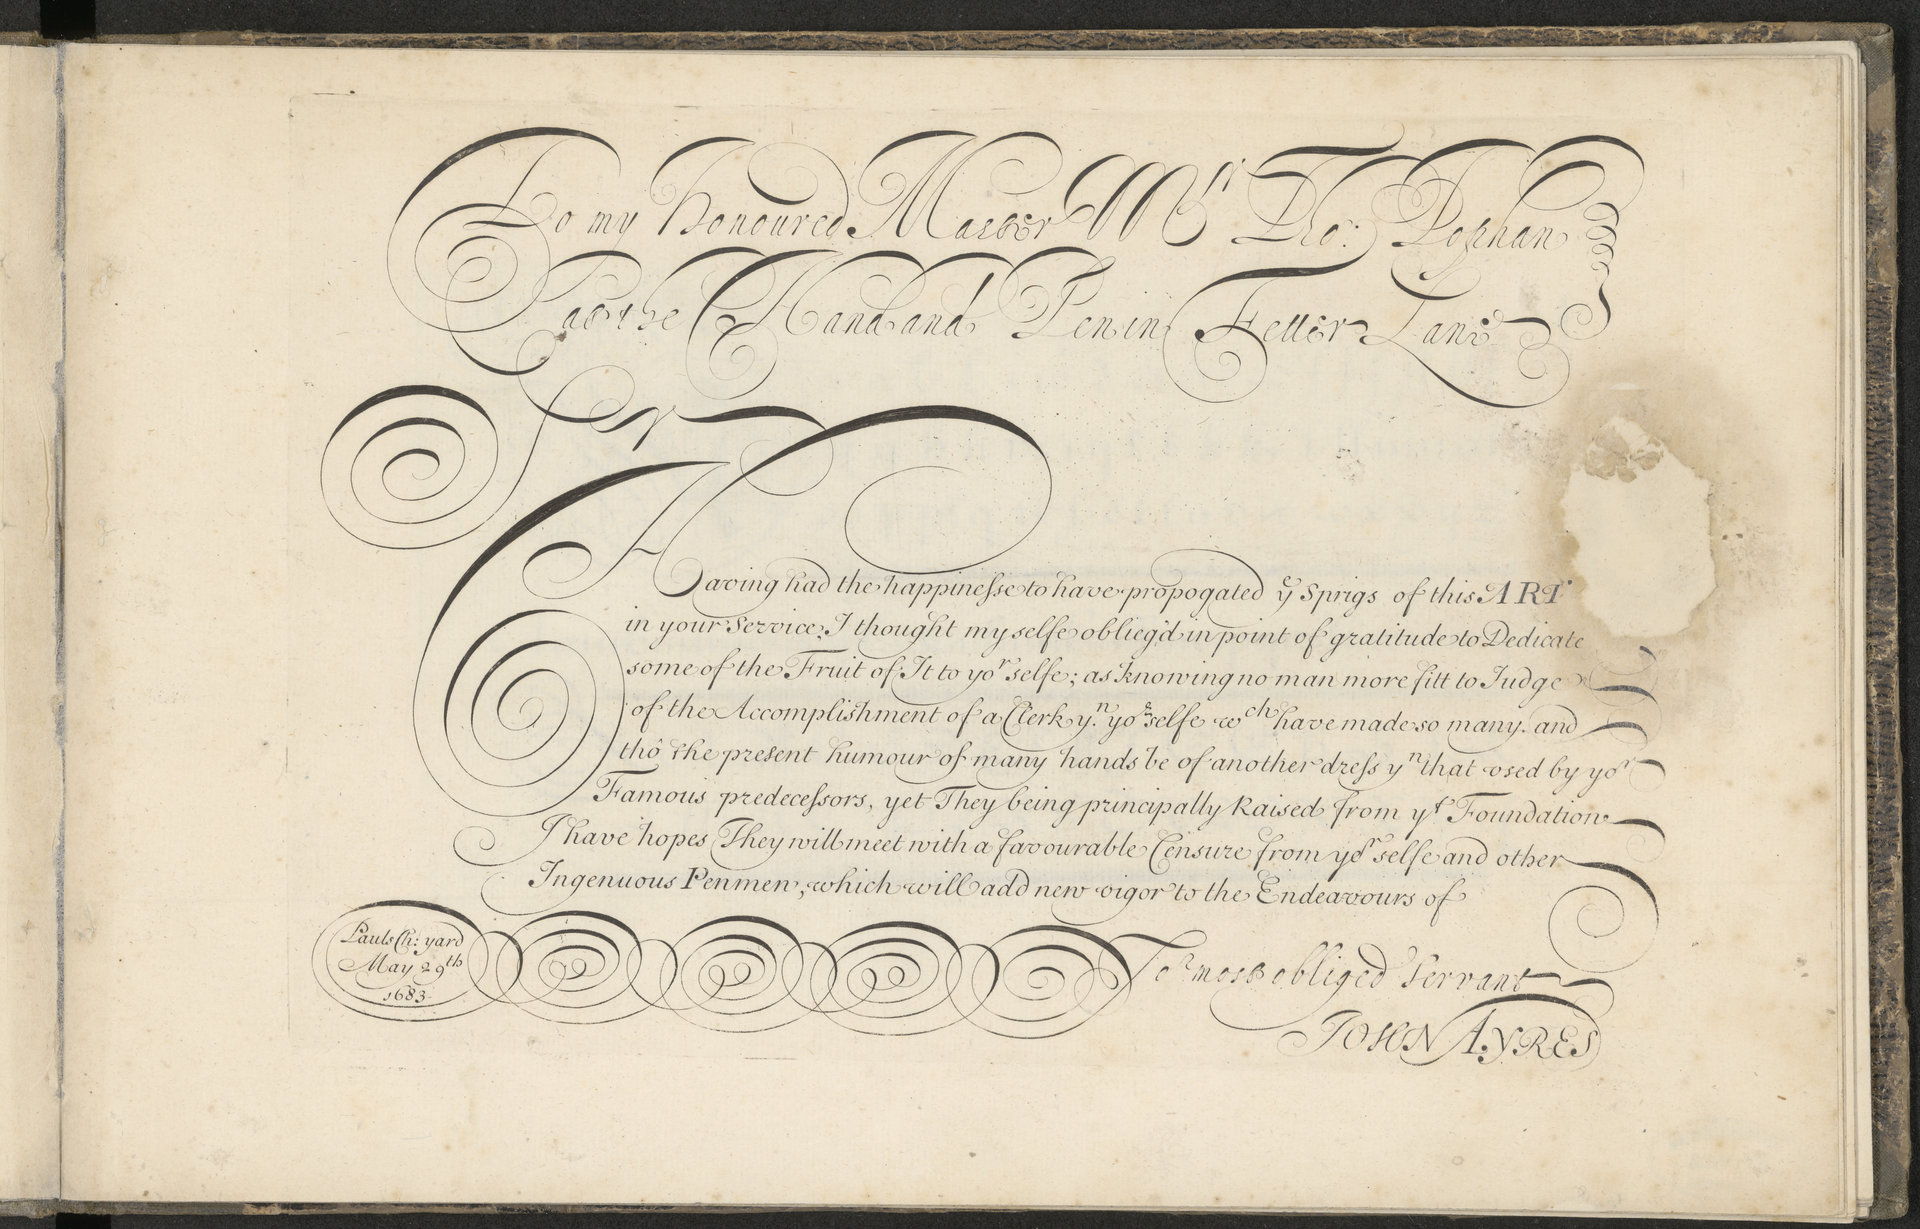 To my honoured Master Mr Tho: Topham
att the Hand and Pen in Fetter Lane
Sr
Having had the happinesse to have propogated ye Sprigs of this ART
in your Service, I thought my selfe oblieg'd in point of gratitude to Dedicate
some of the Fruit of It to yor selfe; as knowing no man more fitt to Judge
of the Accomplishment of a Clerk yn yor selfe wch have made so many. and
thô the present humour of many hands be of another dress yn that used by yor
Famous predecessors, yet They being principally Raised from yt Foundation
I have hopes They will meet with a favourable Censure from yor selfe and other
Ingenuous Penmen, which will add new vigor to the Endeavours of
Pauls Ch: yard
May 29th
1683
Yor most obliged Servant
JOHN AYRES